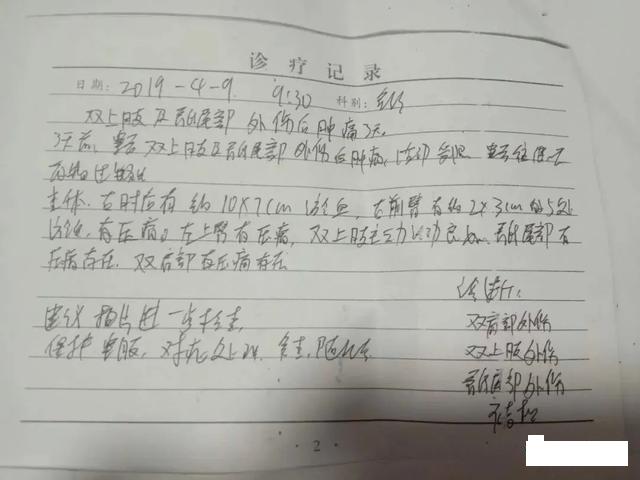 诊疗记录
日期: 2019-4-9. 9:30 科别:
双上肢及骶尾部外伤后肿痛3天.
3天前, 患者双上肢及骶尾部外伤后肿痛, 活动
查体. 右肘后有约10X7cm 淤血, 右前臂有约2X3cm的5处
淤血, 有压痛。左上臂有压痛, 双上肢主动活动良好. 骶尾部有
压痛存在. 双肩部有压痛存在
诊断:
建议拍片进一步检查. 双肩部外伤
保护患肢, 对症处理, 复查, 随诊 双上肢外伤
骶尾部外伤
2